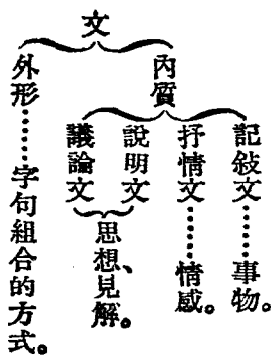 文
內質
記敍文……事物。
抒情文……情感。
說明文
議論文
思想、見解。
外形……字句組合的方式。